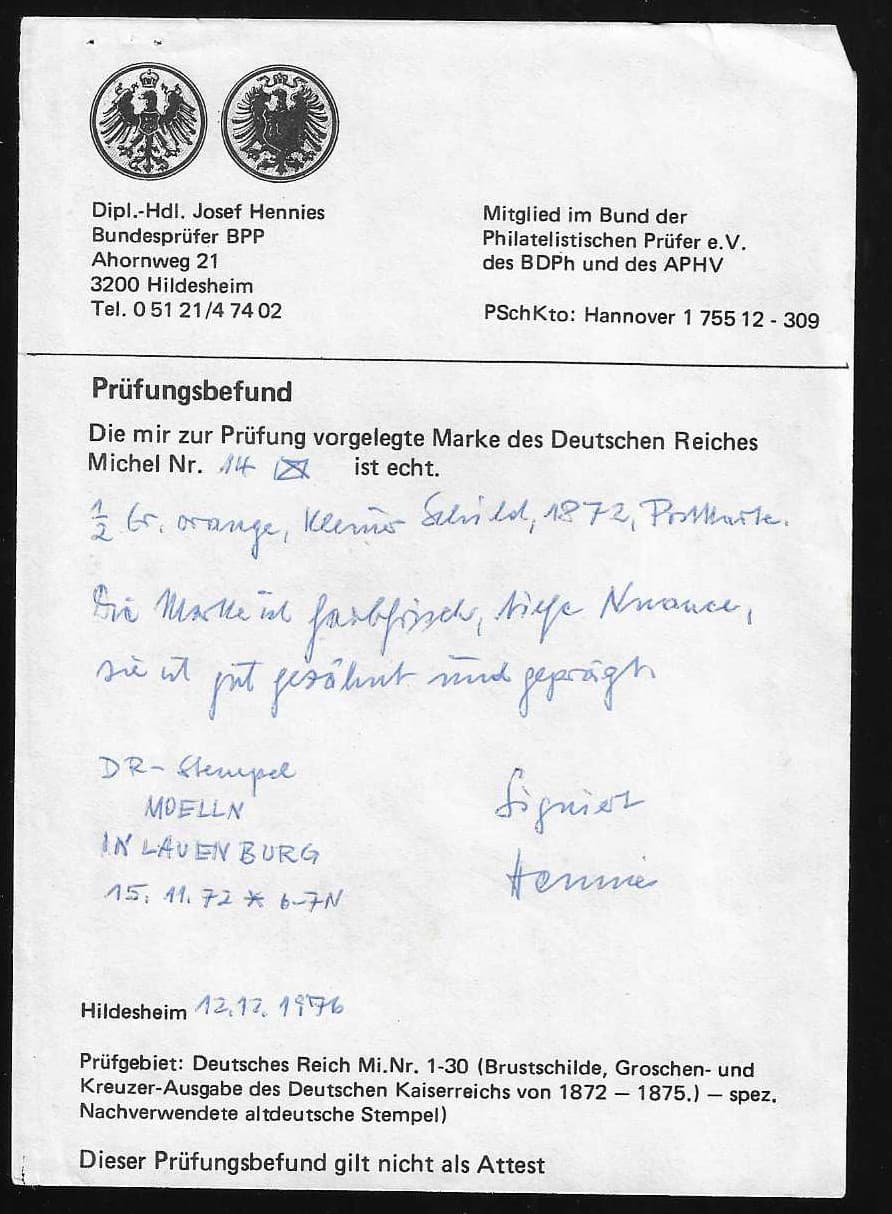 Dipl.-Hdl. Josef Hennies
Bundesprüfer BPP
Ahornweg 21
3200 Hildesheim
Tel. 0 51 21/4 74 02
Mitglied im Bund der
Philatelistischen Prüfer e.V.
des BDPh und des APHV
PSchKto: Hannover 1 755 12 - 309
Prüfungsbefund
Die mir zur Prüfung vorgelegte Marke des Deutschen Reiches
Michel Nr. 14 ist echt.
1/2 Gr. orange, Kleiner Schild, 1872, Postkarte.
Die Marke ist farbfrisch, tiefe Nuance,
sie ist gut gezähnt und geprägt.
DR-Stempel
MOELLN
IN LAUENBURG
15. 11. 72 * 6-7N
Signiert
Hennies
Hildesheim 12.12. 1976
Prüfgebiet: Deutsches Reich Mi.Nr. 1-30 (Brustschilde, Groschen- und
Kreuzer-Ausgabe des Deutschen Kaiserreichs von 1872 – 1875.) – spez.
Nachverwendete altdeutsche Stempel)
Dieser Prüfungsbefund gilt nicht als Attest